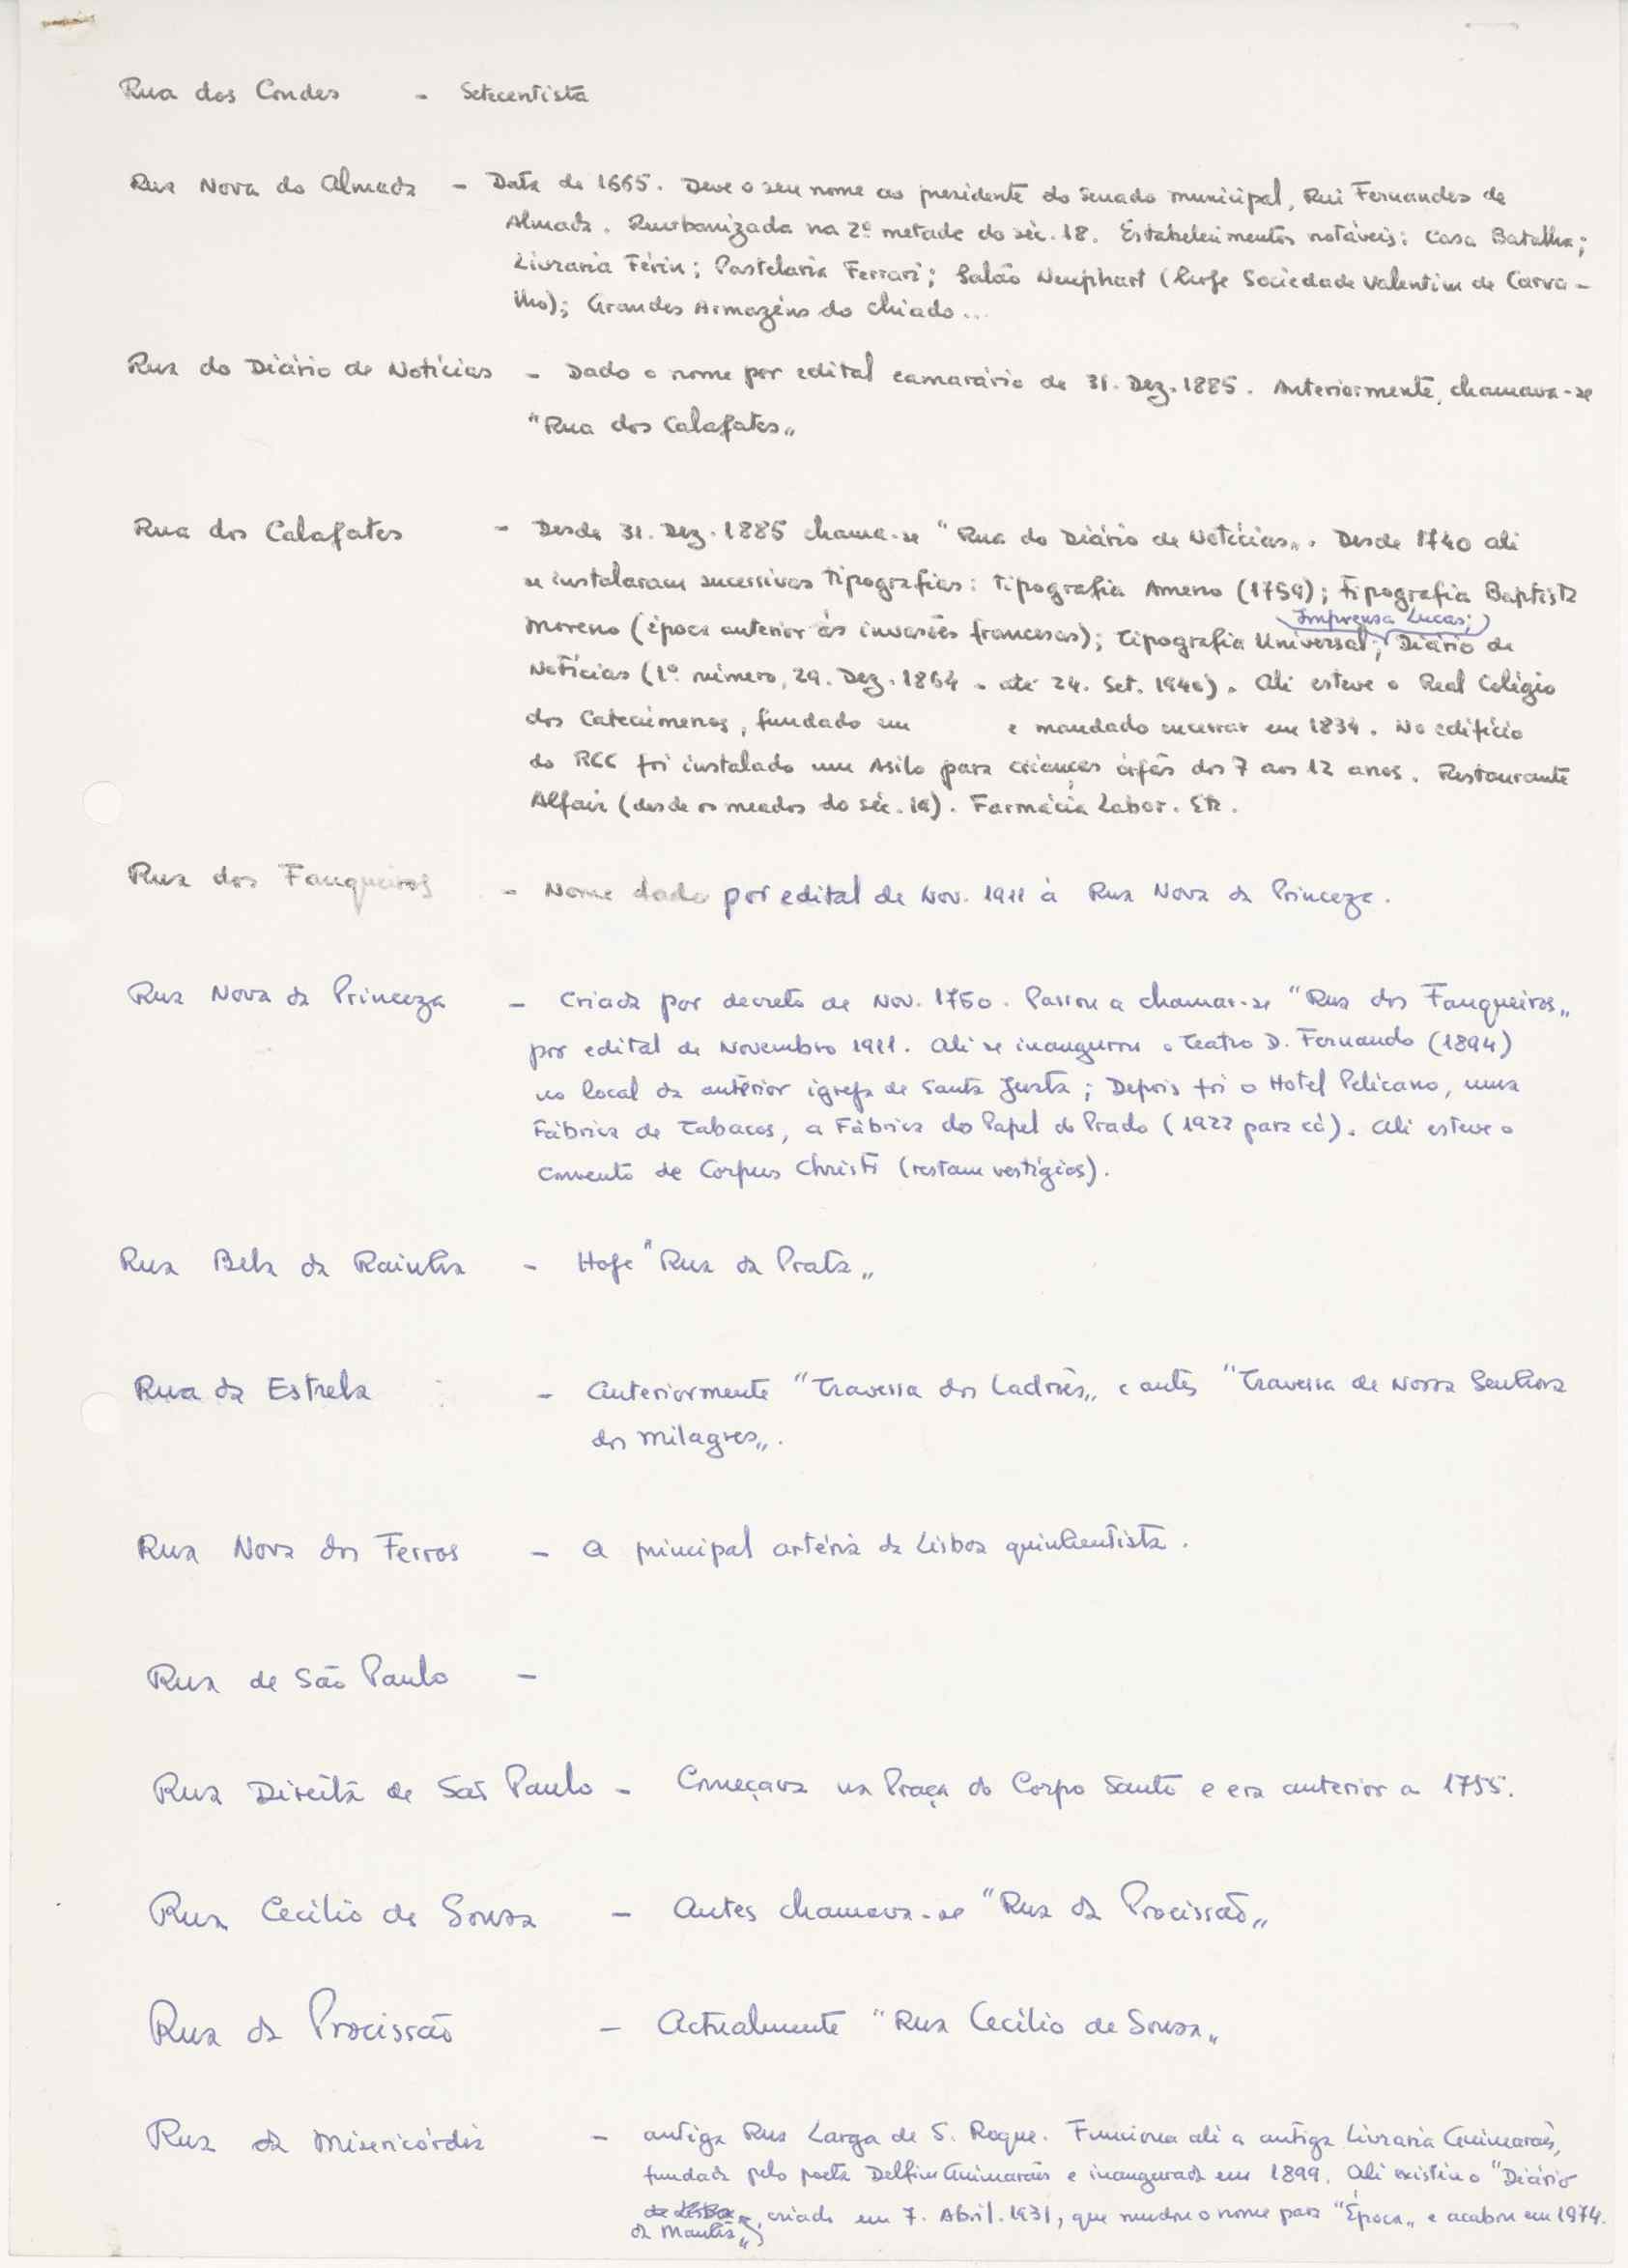 Rua dos Condes - Setecentista
Rua Nova do Almada - Data de 1665. Deve o seu nome ao presidente do Senado municipal, Rui Fernandes de
Almada. Reurbanizada na 2ª metade do séc. 18. Estabelecimentos notáveis: Casa Batalha;
Livraria Férin; Pastelaria Ferrari; Salão Neuphart (hoje Sociedade Valentim de Carva-
lho); Grandes Armazéns do Chiado...
Rua do Diário de Notícias - Dado o nome por edital camarário de 31. Dez. 1885. Anteriormente, chamava-se
"Rua dos Calafates„
Rua dos Calafates - Desde 31. Dez. 1885 chama-se "Rua do Diário de Notícias„. Desde 1740 ali
se instalaram sucessivas tipografias: Tipografia Ameno (1759); Tipografia Baptista
Moreno (época anterior às invasões francesas); Tipografia Universal; Imprensa Lucas; Diário de
Notícias (1º número, 29. Dez. 1864 - até 24. Set. 1940). Ali esteve o Real Colégio
dos Catecúmenos, fundado em e mandado encerrar em 1834. No edifício
do RCC foi instalado um Asilo para crianças órfãs dos 7 aos 12 anos. Restaurante
Alfaia (desde os meados do séc. 19). Farmácia Labor. Etc.
Rua dos Fanqueiros - Nome dado por edital de Nov. 1911 à Rua Nova da Princeza.
Rua Nova da Princeza - Criada por decreto de Nov. 1760. Passou a chamar-se "Rua dos Fanqueiros„
por edital de Novembro 1911. Ali se inaugurou o Teatro D. Fernando (1894)
no local da anterior igreja de Santa Justa; Depois foi o Hotel Pelicano, uma
Fábrica de Tabacos, a Fábrica do Papel do Prado (1922 para cá). Ali esteve o
Convento de Corpus Christi (restam vestígios).
Rua Bela da Rainha - Hoje "Rua da Prata„
Rua da Estrela - Anteriormente "Travessa dos Ladrões„ e antes "Travessa de Nossa Senhora
dos Milagres„.
Rua Nova dos Ferros - A principal artéria da Lisboa quinhentista.
Rua de São Paulo -
Rua Direita de São Paulo - Começava na Praça do Corpo Santo e era anterior a 1755.
Rua Cecílio de Sousa - Antes chamava-se "Rua da Procissão„
Rua da Procissão - Actualmente "Rua Cecílio de Sousa„
Rua da Misericórdia - antiga Rua Larga de S. Roque. Funciona ali a antiga Livraria Guimarães,
fundada pelo poeta Delfim Guimarães e inaugurada em 1899. Ali existiu o "Diário
de Lisboa„, criado em 7. Abril. 1931, que mudou o nome para "Época„ e acabou em 1974.
da Manhã„